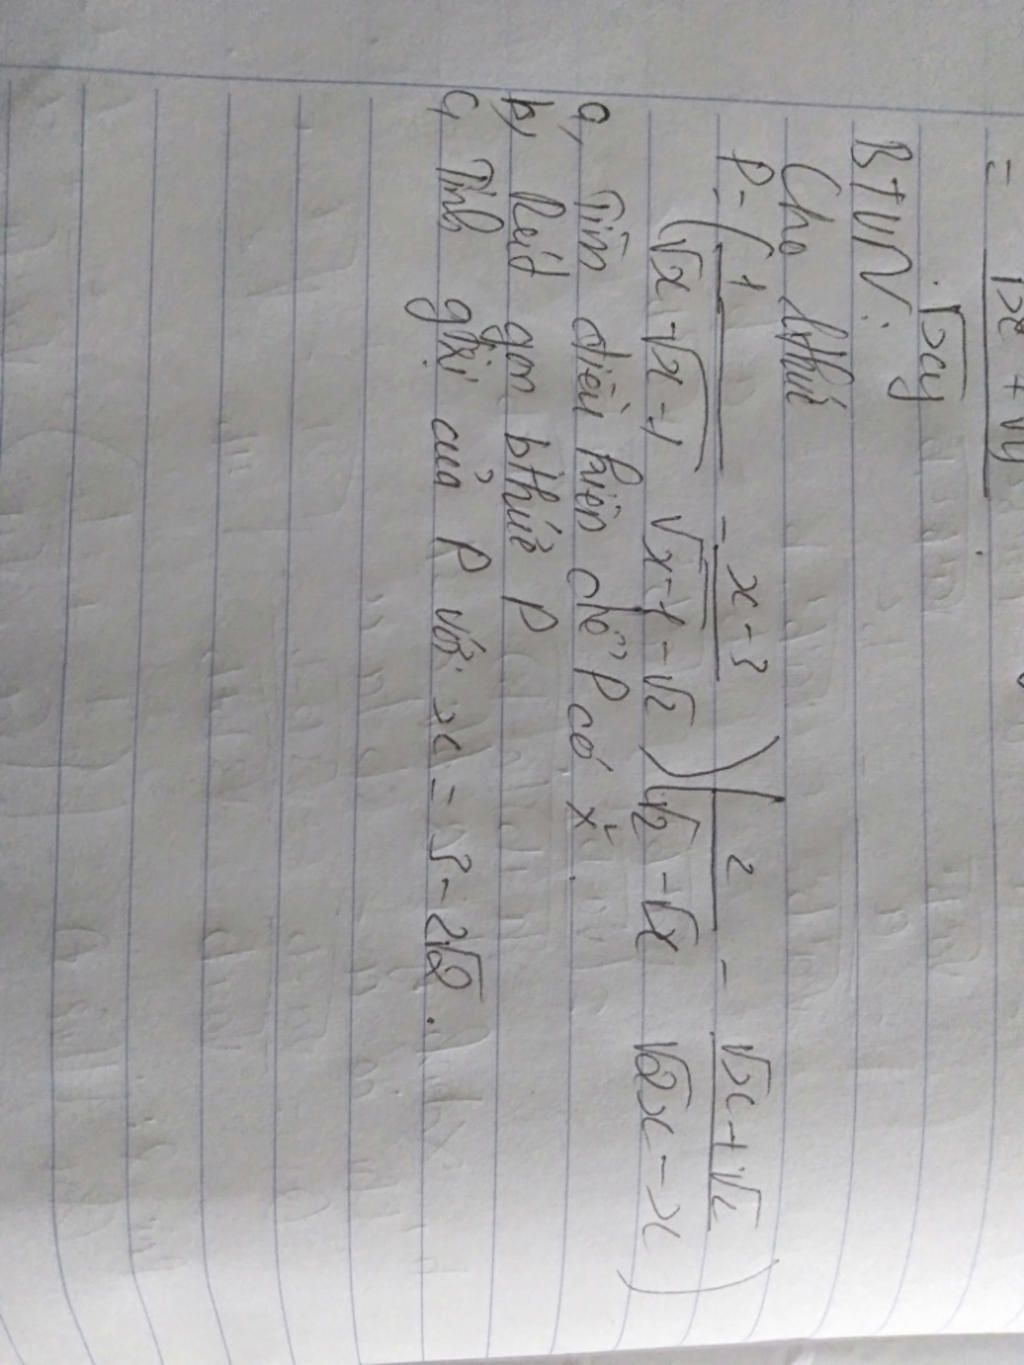 = √x + √y
√xy
BTVN:
Cho bthức
P = ( 1 / (√x - √x-1) - (x-3) / (√x-1 - √2) ) ( 2 / (√2 - √x) - (√x + √2) / (√2x - x) )
a, Tìm điều kiện để P có
b, Rút gọn bthức P
c, Tính gtrị của P với x = 3 - 2√2.